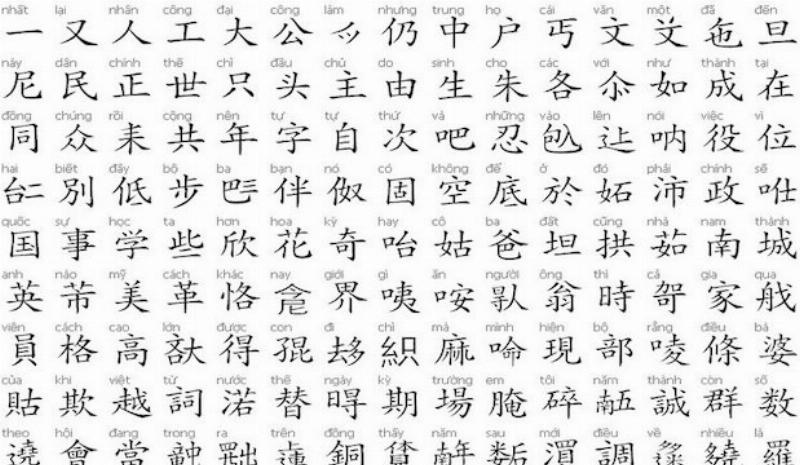 nhất lại nhân công đại công lắm nhưng trung họ cái văn một đã đến
一 又 人 工 大 公 仍 中 户 丐 文 㐌 旦
này dân chính thế chỉ đầu chủ do sinh cho các với như thành tại
尼 民 正 世 只 头 主 由 生 朱 各 如 成 在
đồng chúng rồi cộng nên tự tự thứ và những vào lên nói việc vì
同 众 耒 共 年 字 自 次 吧 忍 呐 役 位
hai biết đấy bộ ba bạn nó có không để ở đó phải chính sẽ
別 低 步 𠀧 伴 伮 固 空 底 於 妬 沛 政
quốc sự học ta hơn hoa kỳ hay cô ba đất cũng nhà nam thành
国 事 学 些 欣 花 奇 咍 姑 爸 坦 拱 茹 南 城
anh nào mỹ cách khác nay giới gì ăn người ông thì cả gia qua
英 芇 美 革 恪 界 咦 咹 翁 時 哿 家
viên cách cao lớn được con đi chỉ mà mình hiện bộ rằng điều bà
員 格 高 得 織 麻 現 部 條 婆
của khi việt từ nước thế ngày kỳ trường em tôi năm thành còn số
貼 欺 越 詞 渃 替 期 場 腌 碎 誠 群 数
theo hội đang trong ra trên đồng thấy năm sau mới điều về nhiều là
遶 會 當 銅 調 羅